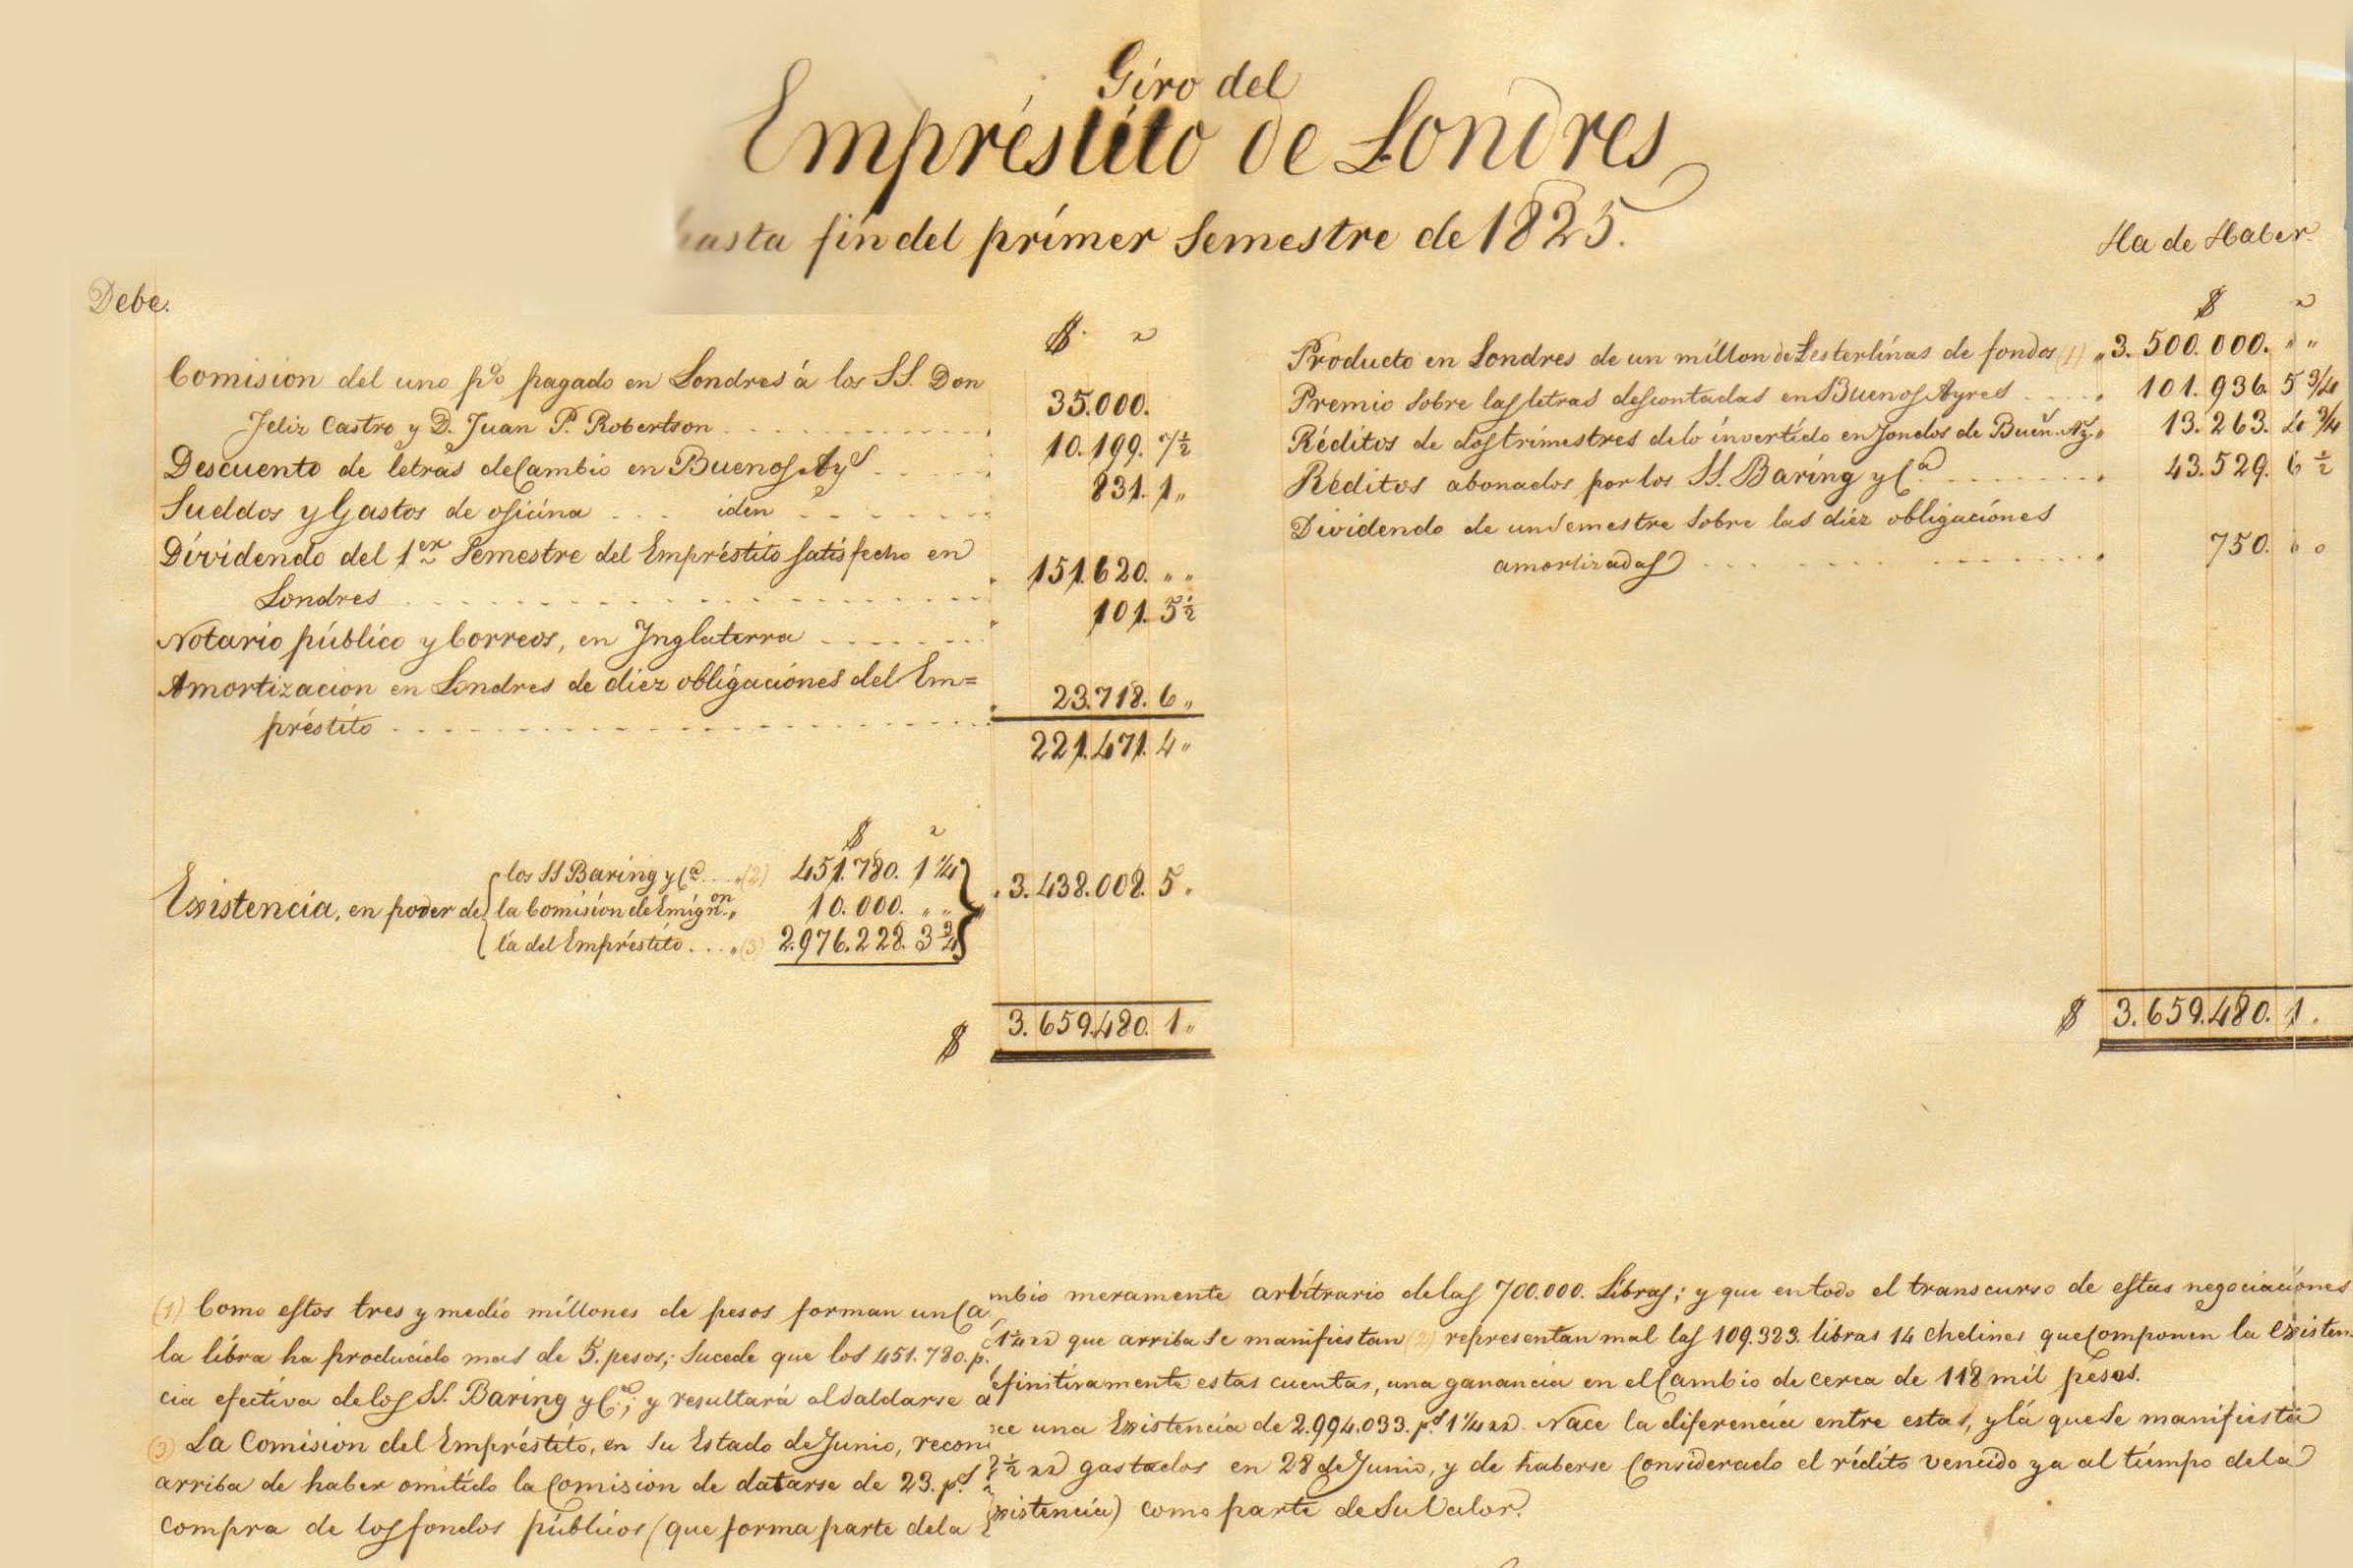 Giro del
Empréstito de Londres
hasta fin del primer Semestre de 1825.
Debe.
$ rs
Comision del uno p% pagado en Londres á los SS. Don
Feliz Castro y D. Juan P. Robertson . . . 35.000.
Descuento de letras de Cambio en Buenos Ays . . . 10.199. 7 1/2
Sueldos y Gastos de oficina . . . iden . . . 831. 1 „
Dividendo del 1er Semestre del Empréstito satisfecho en
Londres . . . 151.620. „ „
Notario público y Correos, en Inglaterra . . . 101. 5 1/2
Amortizacion en Londres de diez obligaciónes del Em=
préstito . . . 23.718. 6 „
221.471. 4 „
$ rs
Existencia, en poder de
los SS Baring y Ca. . . (2) 451.780. 1 1/4
la Comision de Emigron. „ 10.000. „ „
la del Empréstito . . . „ (3) 2.976.228. 3 3/4
3.438.008. 5 „
$ 3.659.480. 1 „
Ha de Haber
$ rs
Producto en Londres de un millon de £ esterlinas de fondos (1) „ 3.500.000. „ „
Premio sobre las letras descontadas en Buenos Ayres . . . 101.936. 5 3/4
Réditos de dos trimestres de lo invertido en fondos de Buens. Ays. „ 13.263. 4 3/4
Réditos abonados por los SS. Baring y Ca . . . 43.529. 6 1/2
Dividendo de un Semestre sobre las diez obligaciónes
amortizadas . . . 750. „ „
$ 3.659.480. 1 .
(1) Como estos tres y medio millones de pesos forman un Cambio meramente arbitrario de las 700.000. Libras; y que en todo el transcurso de estas negociaciónes
la libra ha producido mas de 5. pesos; sucede que los 451.780. p. 1 1/4 rs que arriba se manifiestan (2) representan mal las 109.323. libras 14 chelines que Componen la existen-
cia efectiva de los SS. Baring y Ca.; y resultará al saldarse definitivamente estas cuentas, una ganancia en el Cambio de cerca de 118 mil pesos.
(3) La Comision del Empréstito, en su Estado de Junio, reconoce una Existencia de 2.994.033. ps 1 1/4 rs. Nace la diferencia entre estas, y lá que se manifiesta
arriba de haber omitido la Comision de datarse de 23. ps 2 1/2 rs gastados en 28 de Junio, y de haberse Considerado el rédito vencido ya al tiempo de la
compra de los fondos públicos (que forma parte de la Existencia) como parte de su Valor.